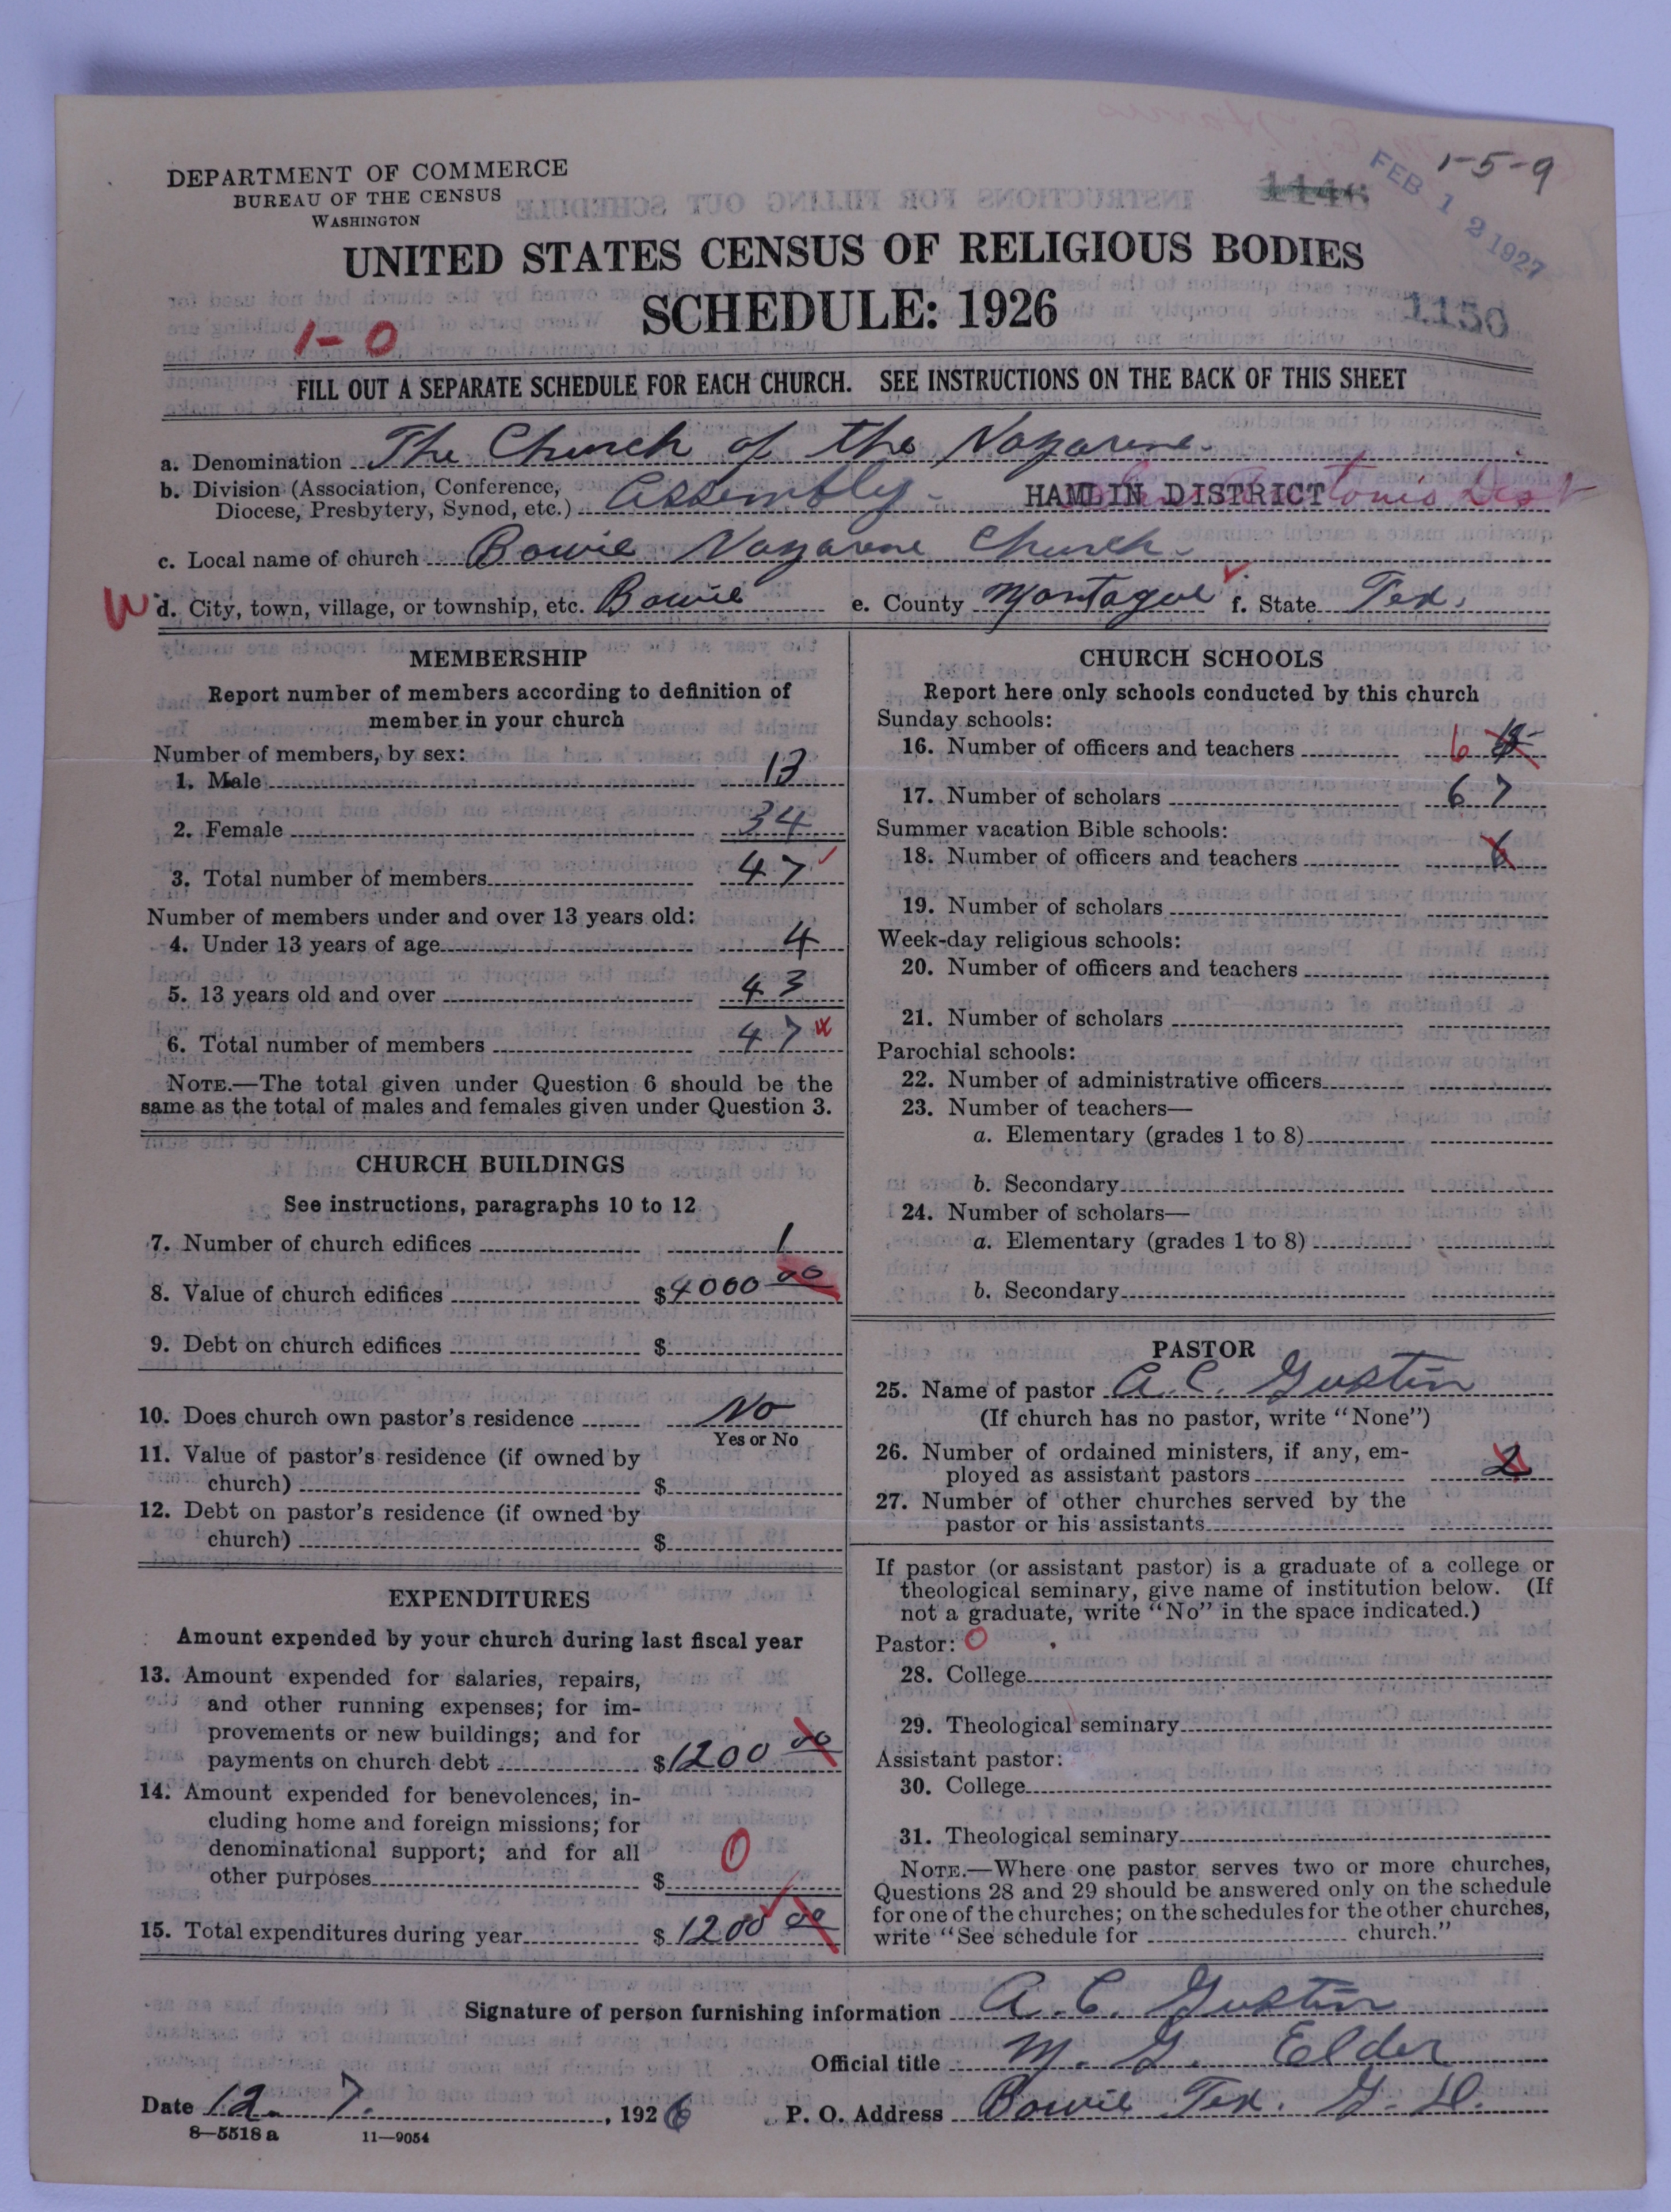 1-5-9
DEPARTMENT OF COMMERCE
BUREAU OF THE CENSUS
WASHINGTON
1146
FEB 12 1927
UNITED STATES CENSUS OF RELIGIOUS BODIES
SCHEDULE: 1926
1150
1-0
FILL OUT A SEPARATE SCHEDULE FOR EACH CHURCH. SEE INSTRUCTIONS ON THE BACK OF THIS SHEET
a. Denomination The Church of the Nazarene
b. Division (Association, Conference, Diocese, Presbytery, Synod, etc.) Assembly HAMLIN DISTRICT
c. Local name of church Bowie Nazarene Church
d. City, town, village, or township, etc. Bowie e. County Montague f. State Tex.
MEMBERSHIP
Report number of members according to definition of
member in your church
Number of members, by sex:
1. Male 13
2. Female 34
3. Total number of members 47
Number of members under and over 13 years old:
4. Under 13 years of age 4
5. 13 years old and over 43
6. Total number of members 47
NOTE.—The total given under Question 6 should be the
same as the total of males and females given under Question 3.
CHURCH BUILDINGS
See instructions, paragraphs 10 to 12
7. Number of church edifices 1
8. Value of church edifices $4000 00
9. Debt on church edifices $
10. Does church own pastor's residence No
Yes or No
11. Value of pastor's residence (if owned by
church) $
12. Debt on pastor's residence (if owned by
church) $
EXPENDITURES
Amount expended by your church during last fiscal year
13. Amount expended for salaries, repairs,
and other running expenses; for im-
provements or new buildings; and for
payments on church debt $1200 00
14. Amount expended for benevolences, in-
cluding home and foreign missions; for
denominational support; and for all
other purposes $ 0
15. Total expenditures during year $1200 00
CHURCH SCHOOLS
Report here only schools conducted by this church
Sunday schools:
16. Number of officers and teachers 6
17. Number of scholars 67
Summer vacation Bible schools:
18. Number of officers and teachers 6
19. Number of scholars
Week-day religious schools:
20. Number of officers and teachers
21. Number of scholars
Parochial schools:
22. Number of administrative officers
23. Number of teachers—
a. Elementary (grades 1 to 8)
b. Secondary
24. Number of scholars—
a. Elementary (grades 1 to 8)
b. Secondary
PASTOR
25. Name of pastor A. C. Gustin
(If church has no pastor, write "None")
26. Number of ordained ministers, if any, em-
ployed as assistant pastors 2
27. Number of other churches served by the
pastor or his assistants
If pastor (or assistant pastor) is a graduate of a college or
theological seminary, give name of institution below. (If
not a graduate, write "No" in the space indicated.)
Pastor: 0
28. College
29. Theological seminary
Assistant pastor:
30. College
31. Theological seminary
NOTE.—Where one pastor serves two or more churches,
Questions 28 and 29 should be answered only on the schedule
for one of the churches; on the schedules for the other churches,
write "See schedule for church."
Signature of person furnishing information A. C. Gustin
Official title M. G. Elder
Date 12. 7. , 1926 P. O. Address Bowie Tex. G. D.
8—5518 a 11—9054